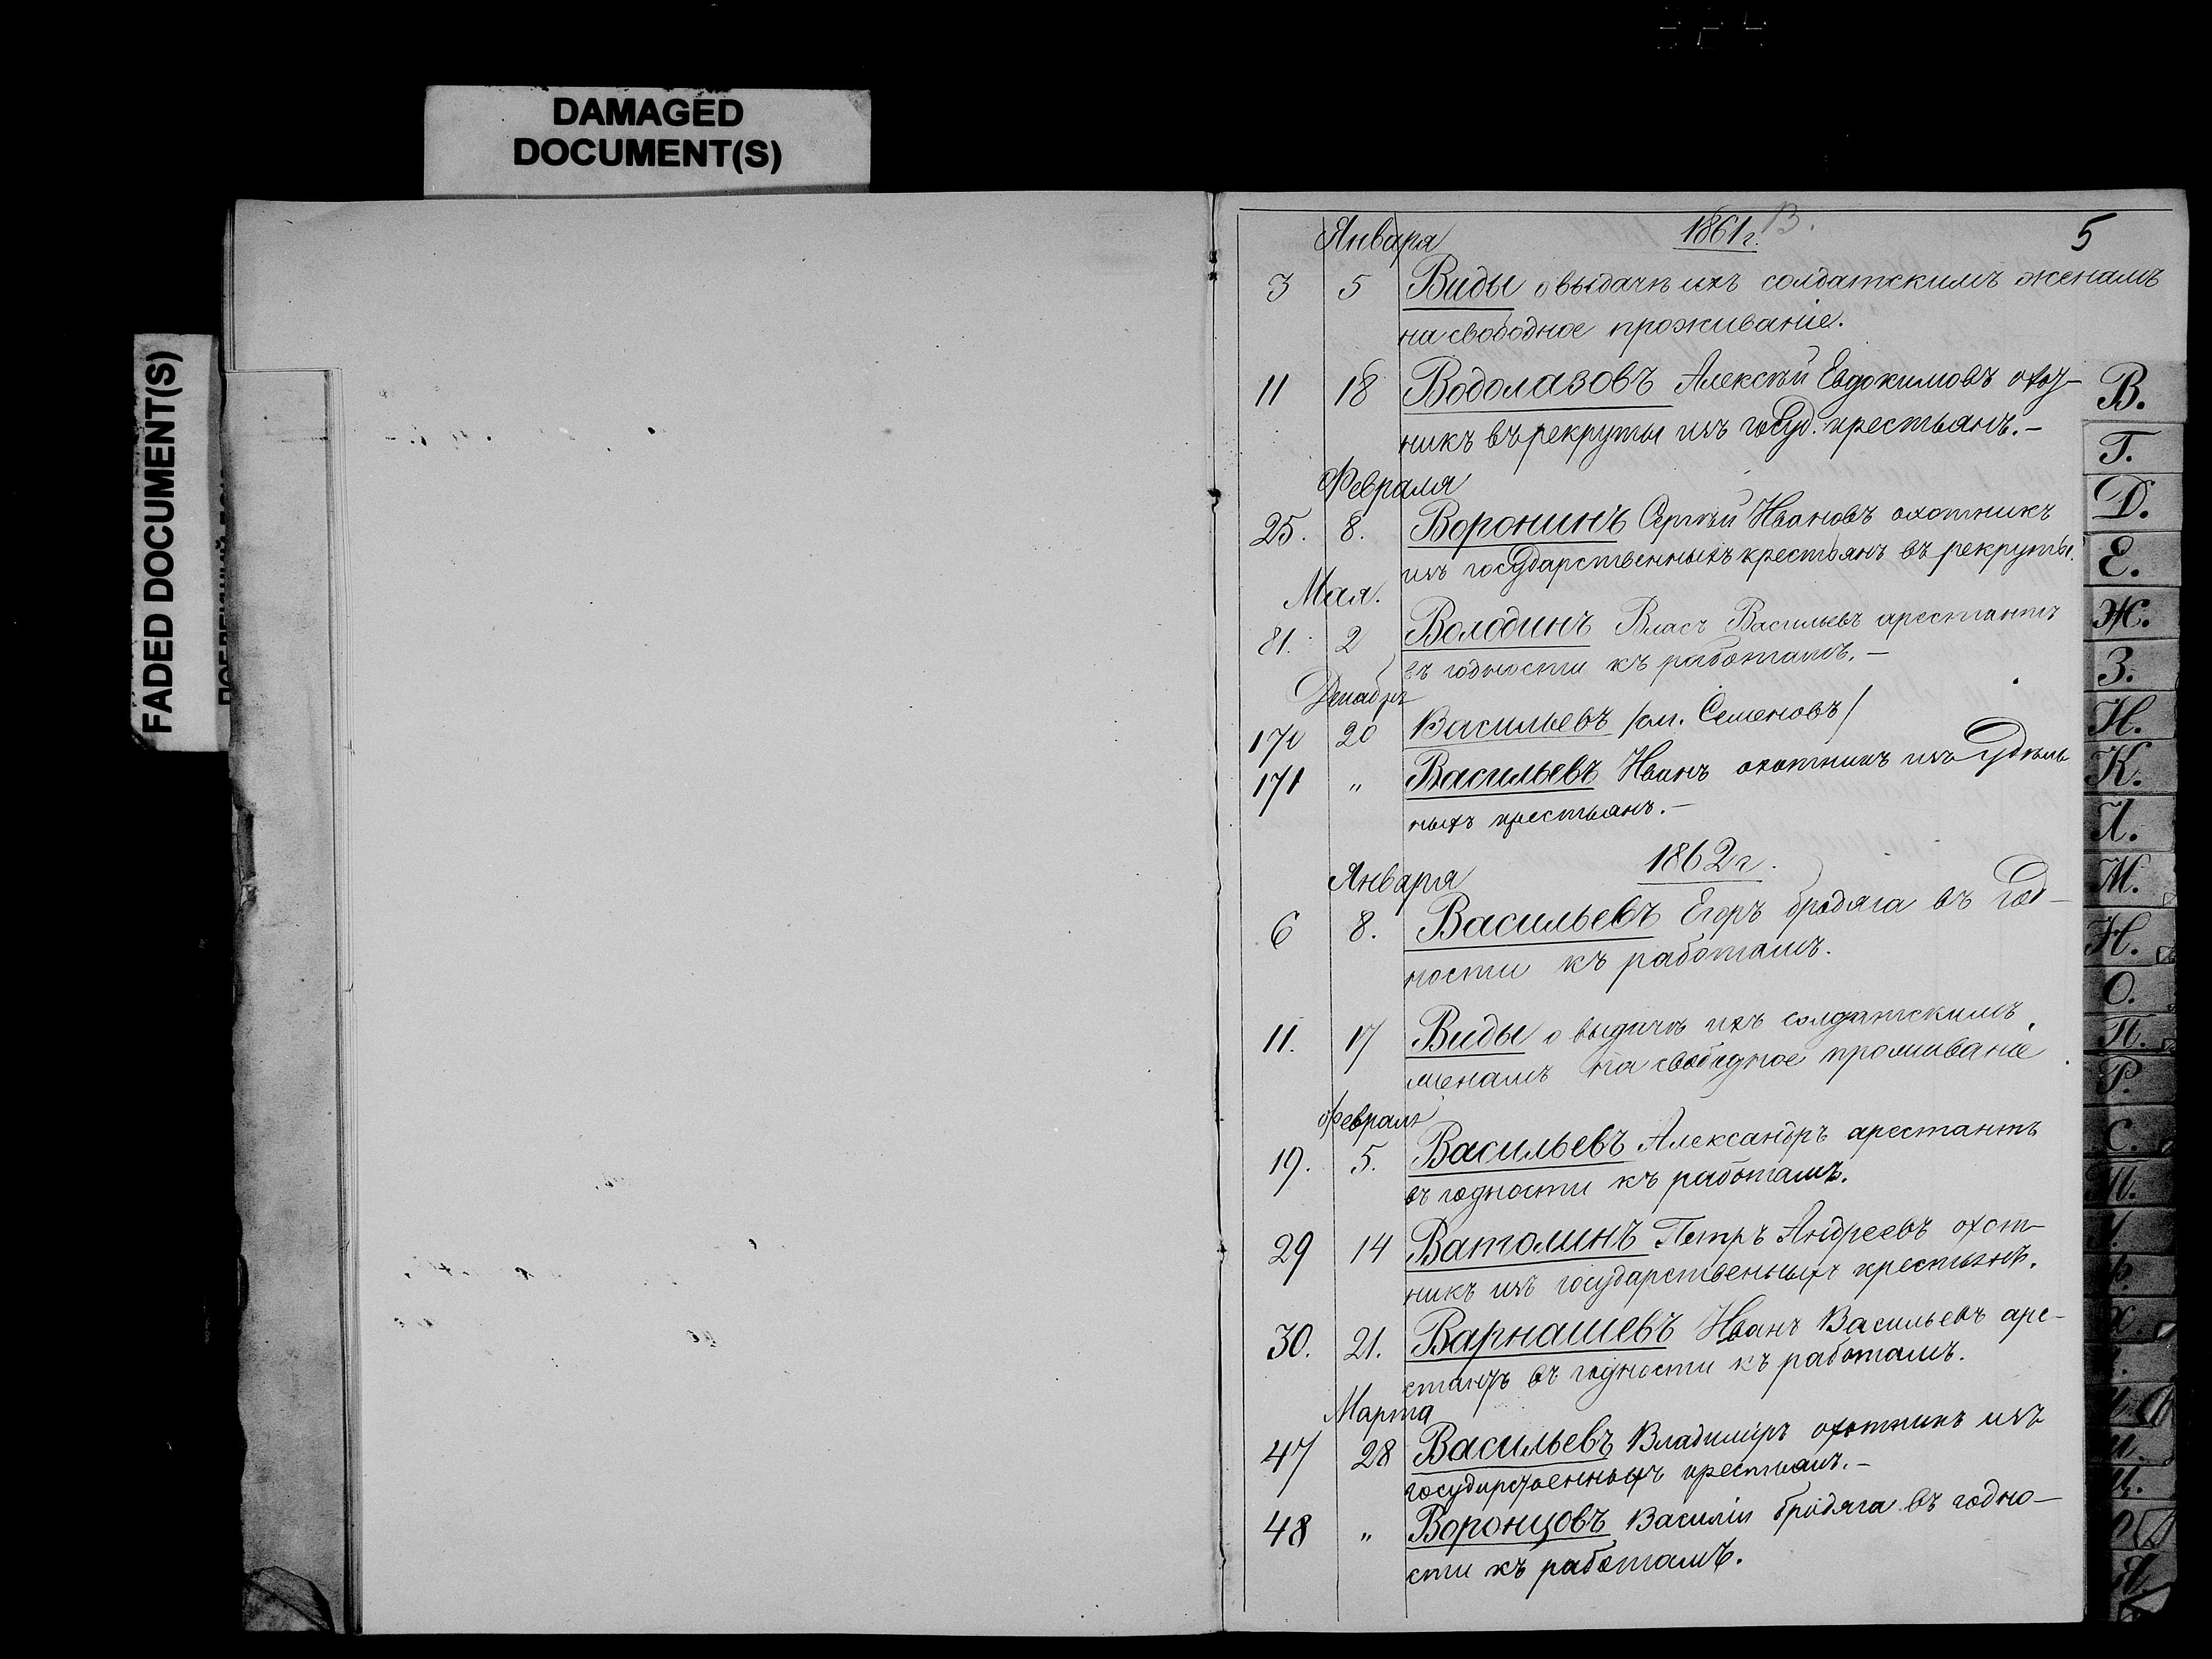 DAMAGED
DOCUMENT(S)
FADED DOCUMENT(S)
1861 г. В. 5
Января
3 5 Виды о выдачѣ ихъ солдатскимъ женамъ
на свободное проживаніе.
11 18 Водолазовъ Алексѣй Евдокимовъ охот-
никъ въ рекруты изъ госуд. крестьянъ.-
Февраля
25. 8. Воронинъ Сергѣй Ивановъ охотникъ
изъ государственныхъ крестьянъ въ рекруты.
Мая.
81. 2 Володинъ Власъ Васильевъ арестантъ
въ годности къ работамъ.-
Декабря
170 20 Васильевъ /см. Семеновъ/
171 " Васильевъ Иванъ охотникъ изъ Удѣль
ныхъ крестьянъ.-
1862 г.
Января
6 8. Васильевъ Егоръ бродяга въ год-
ности къ работамъ.
11. 17 Виды о выдачѣ ихъ солдатскимъ
женамъ на свободное проживаніе.
Февраля
19. 5. Васильевъ Александръ арестантъ
въ годности къ работамъ.
29 14 Ватолинъ Петръ Андреевъ охот-
никъ изъ государственныхъ крестьянъ.
30. 21. Варнашевъ Иванъ Васильевъ аре-
стантъ въ годности къ работамъ.
Марта
47 28 Васильевъ Владиміръ охотникъ изъ
государственныхъ крестьянъ.-
48 " Воронцовъ Василій бродяга въ годно-
сти къ работамъ.
В.
Г.
Д.
Е.
Ж.
З.
И.
К.
Л.
М.
Н.
О.
П.
Р.
С.
Т.